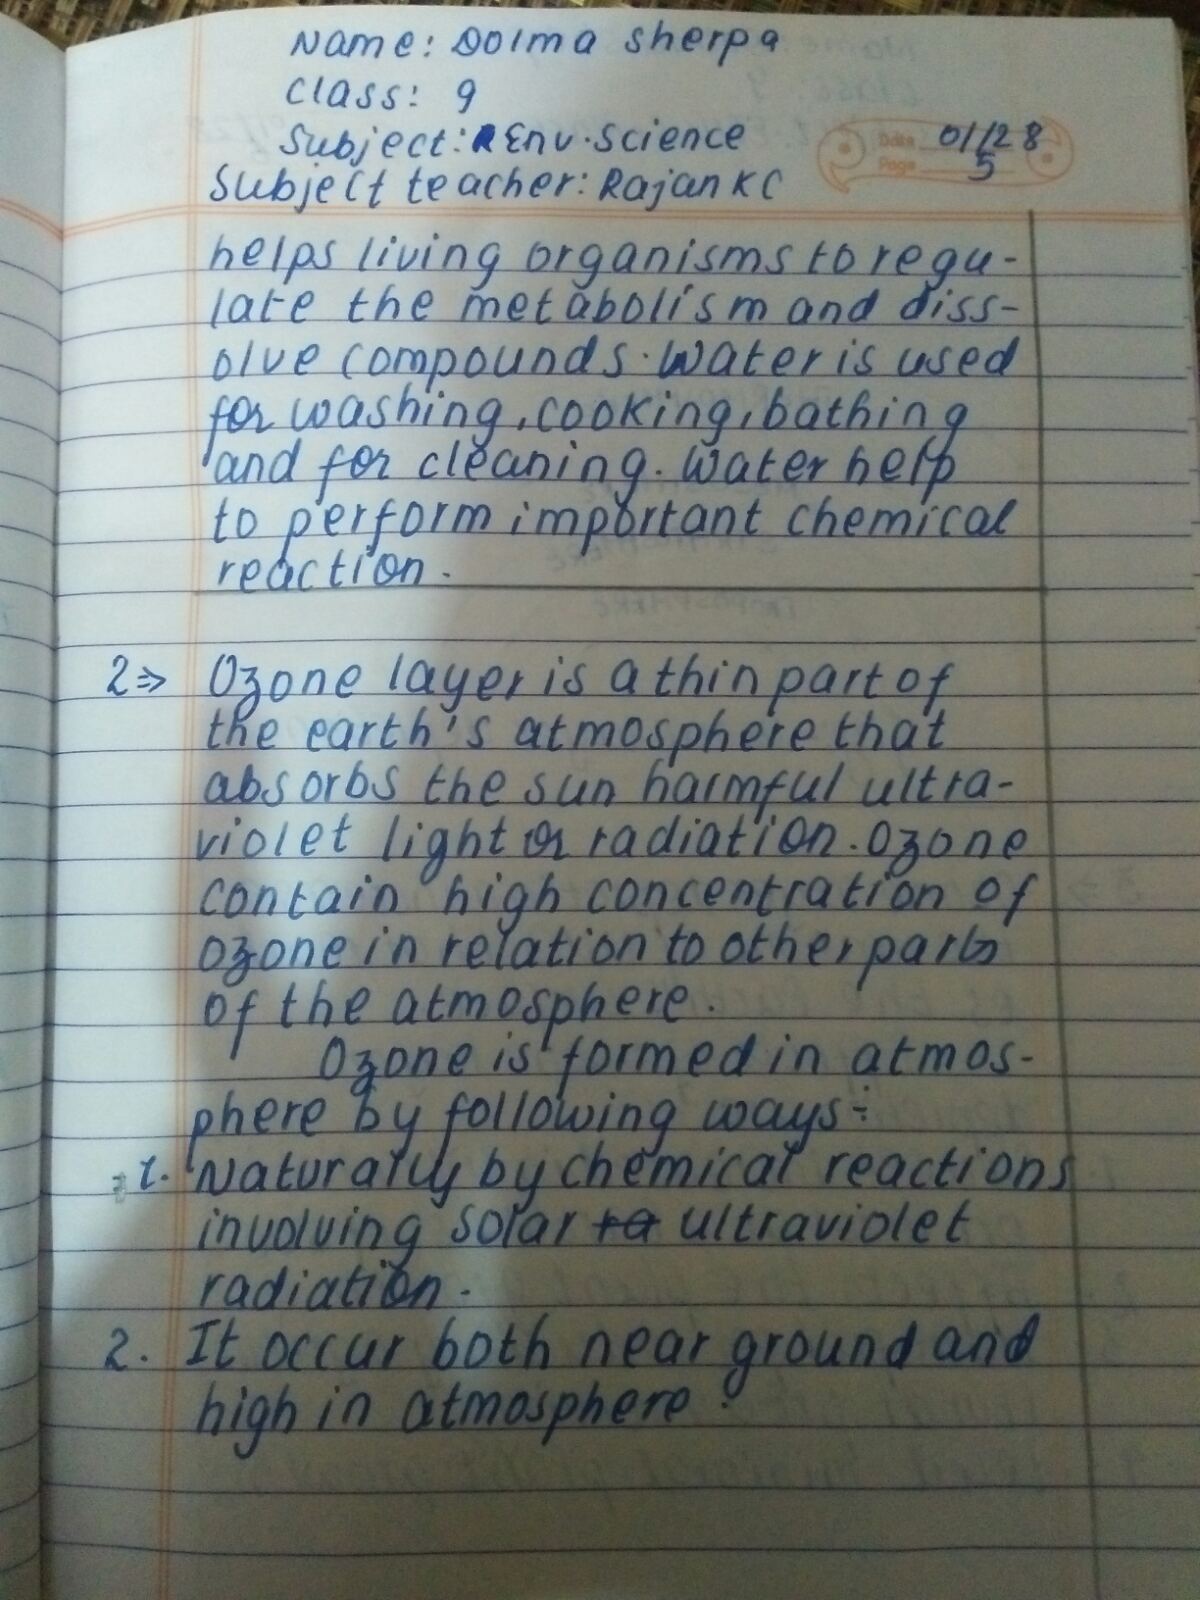 Name: Dolma Sherpa
Class: 9
Subject: Env. Science
Subject teacher: Rajan KC
Date 01/28
Page 5
helps living organisms to regu-
late the metabolism and diss-
olve compounds. Water is used
for washing, cooking, bathing
and for cleaning. Water help
to perform important chemical
reaction.
2⇒ Ozone layer is a thin part of
the earth's atmosphere that
absorbs the sun harmful ultra-
violet light or radiation. Ozone
contain high concentration of
ozone in relation to other parts
of the atmosphere.
Ozone is formed in atmos-
phere by following ways:-
1. Naturally by chemical reactions
involving solar ultraviolet
radiation.
2. It occur both near ground and
high in atmosphere.